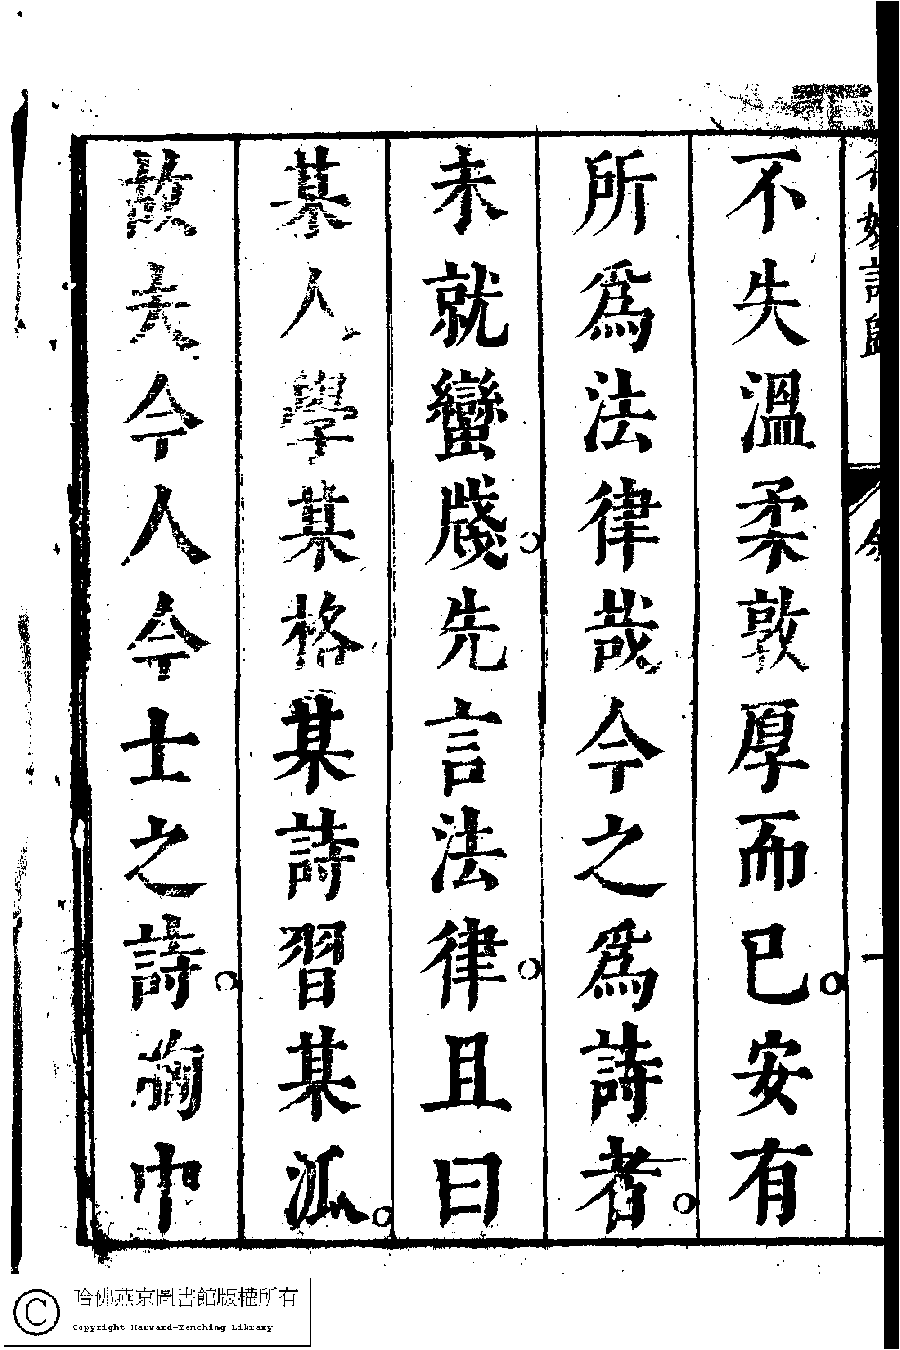 不失溫柔敦厚而已。安有
所爲法律哉今之爲詩者。
未就蠻牋。先言法律。且曰
某人學某格某詩習某泒。
故夫今人今士之詩。胸中
哈佛燕京圖書館版權所有
Copyright Harvard-Yenching Library